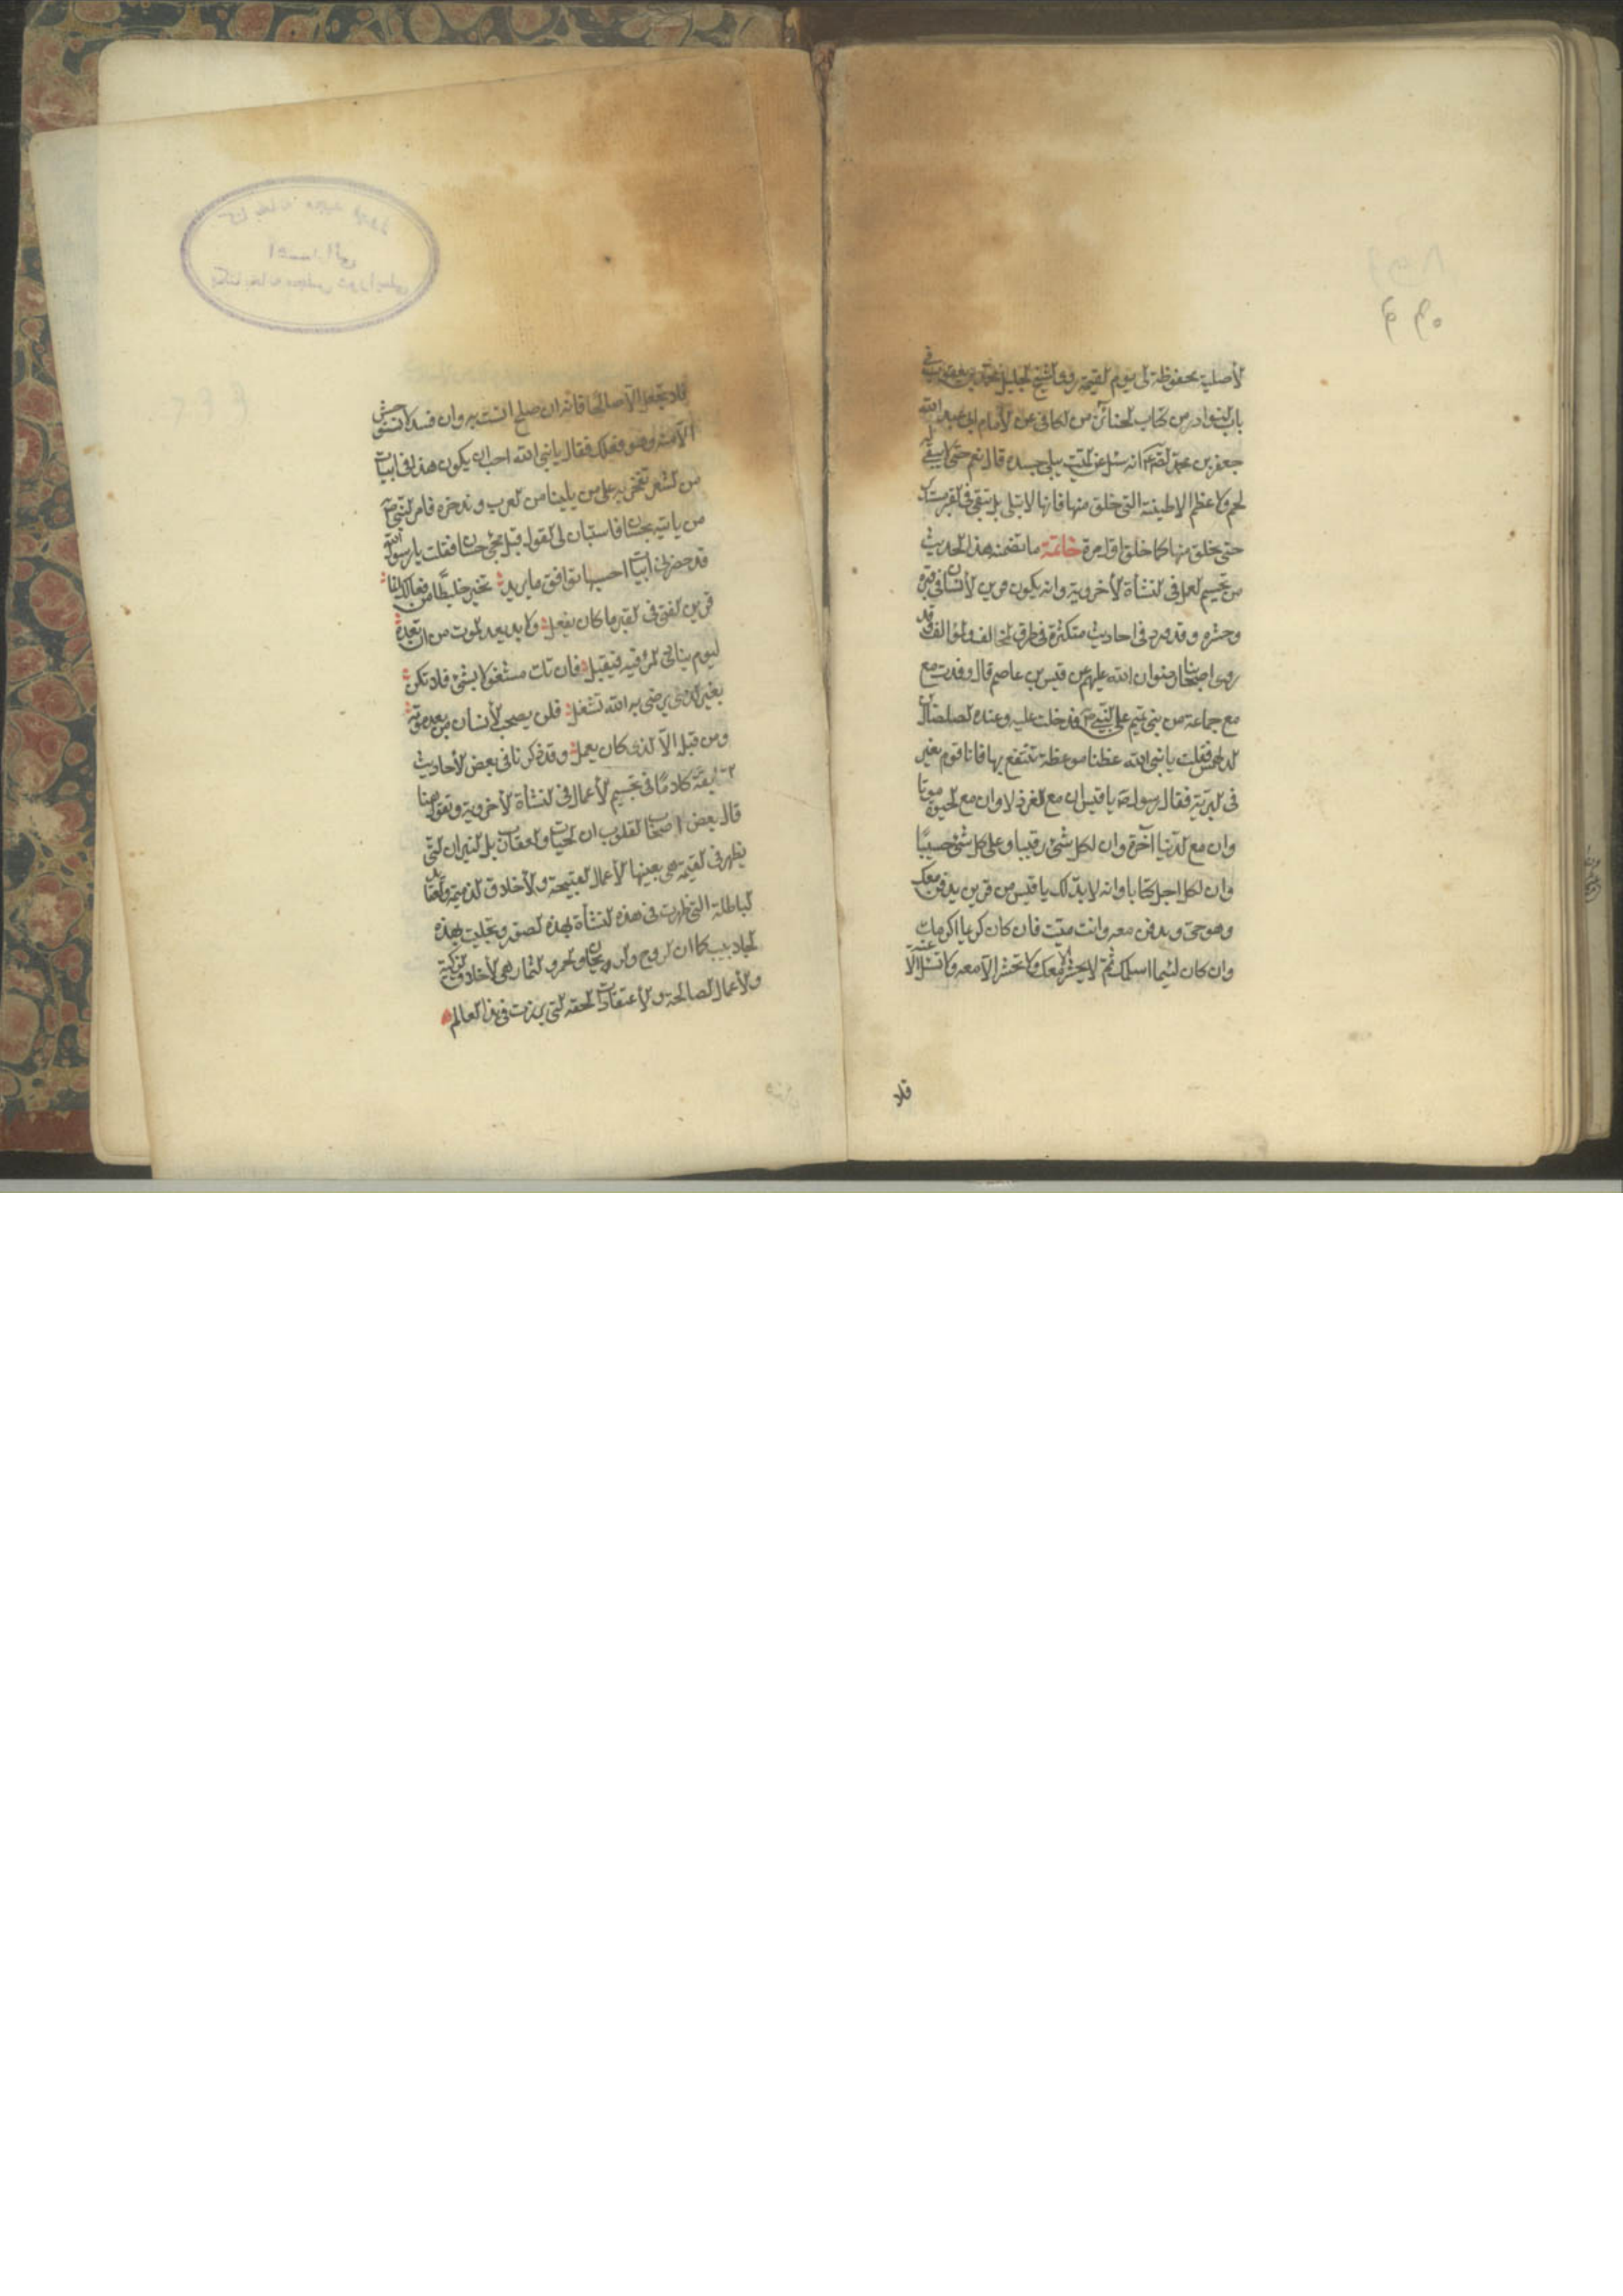 الأصلية محفوظة الى يوم القيمة روى الشيخ الجليل محمد بن يعقوب في
باب النوادر من كتاب الجنائز من الكافى عن الأمام ابى عبد الله
جعفر بن محمد الصادق ع انه سئل عن الميت يبلى جسده قال نعم حتى لا يبقى له
لحم ولا عظم الا طينته التى خلق منها فانها لا تبلى بل تبقى في القبر مستديرة
حتى يخلق منها كما خلق اول مرة خاتمة ما تضمنه هذا الحديث
من تجسيم العمل فى النشأة الأخروية وانه يكون قرين الأنسان فى قبره
وحشره وقد ورد فى احاديث متكثرة فى طرق المخالف والمؤالف وقد
روى اصحابنا رضوان الله عليهم عن قيس بن عاصم قال وفدت مع
مع جماعة من بنى تميم على النبى ص فدخلت عليه وعنده الصلصال بن
الدلهمس فقلت يا نبى الله عظنا موعظة ننتفع بها فانا قوم نعبر
فى البرية فقال رسول ص يا قيس ان مع العز ذلا وان مع الحيوة موتا
وان مع الدنيا آخرة وان لكل شئ رقيبا وعلى كل شئ حسيبًا
وان لكل اجل كتابا وانه لا بد لك يا قيس من قرين يدفن معك
وهو حى وتدفن معه وانت ميت فان كان كريما اكرمك
وان كان لئيما اسلمك ثم لا يحشر الا معك ولا تحشر الا معه ولا تسئل الا عنه
فلا
فلا تجعله الا صالحًا فانه ان صلح انست به وان فسد لا تستوحش
الا منه وهو فعلك فقال يا نبى الله احب ان يكون هذا فى ابيات
من الشعر نفخر به على من يلينا من العرب وندخره فامر النبى ص
من ياتيه بحسان فاستبان لى القول قبل مجئ حسان فقلت يا رسول الله
قد حضرنى ابيات احسبها توافق ما يريد تخير خليطًا من فعالك انما
قرين الفتى فى القبر ما كان يفعل ولا بد بعد الموت من ان تعده
ليوم ينادى المرء فيه فيقبل فان تك مشغولا بشئ فلا تكن
بغير الذى يرضى به الله تشغل فلن يصحب الأنسان من بعد موته
ومن قبله الا الذى كان يعمل وقد ذكرنا فى بعض الأحاديث
السابقة كلامًا فى تجسيم الأعمال فى النشأة الأخروية ونقول هنا
قال بعض اصحاب القلوب ان الحيات والعقارب بل النيران التى
يظهر فى القيمة هى بعينها الأعمال القبيحة والأخلاق الذميمة والعقايد
الباطلة التى ظهرت فى هذه النشأة بهذه الصور وتجلبت بهذه
الجلابيب كما ان الروح والريحان والحور والثمار هى الأخلاق الزكية
والأعمال الصالحة والأعتقادات الحقه التى برزت فى هذا العالم